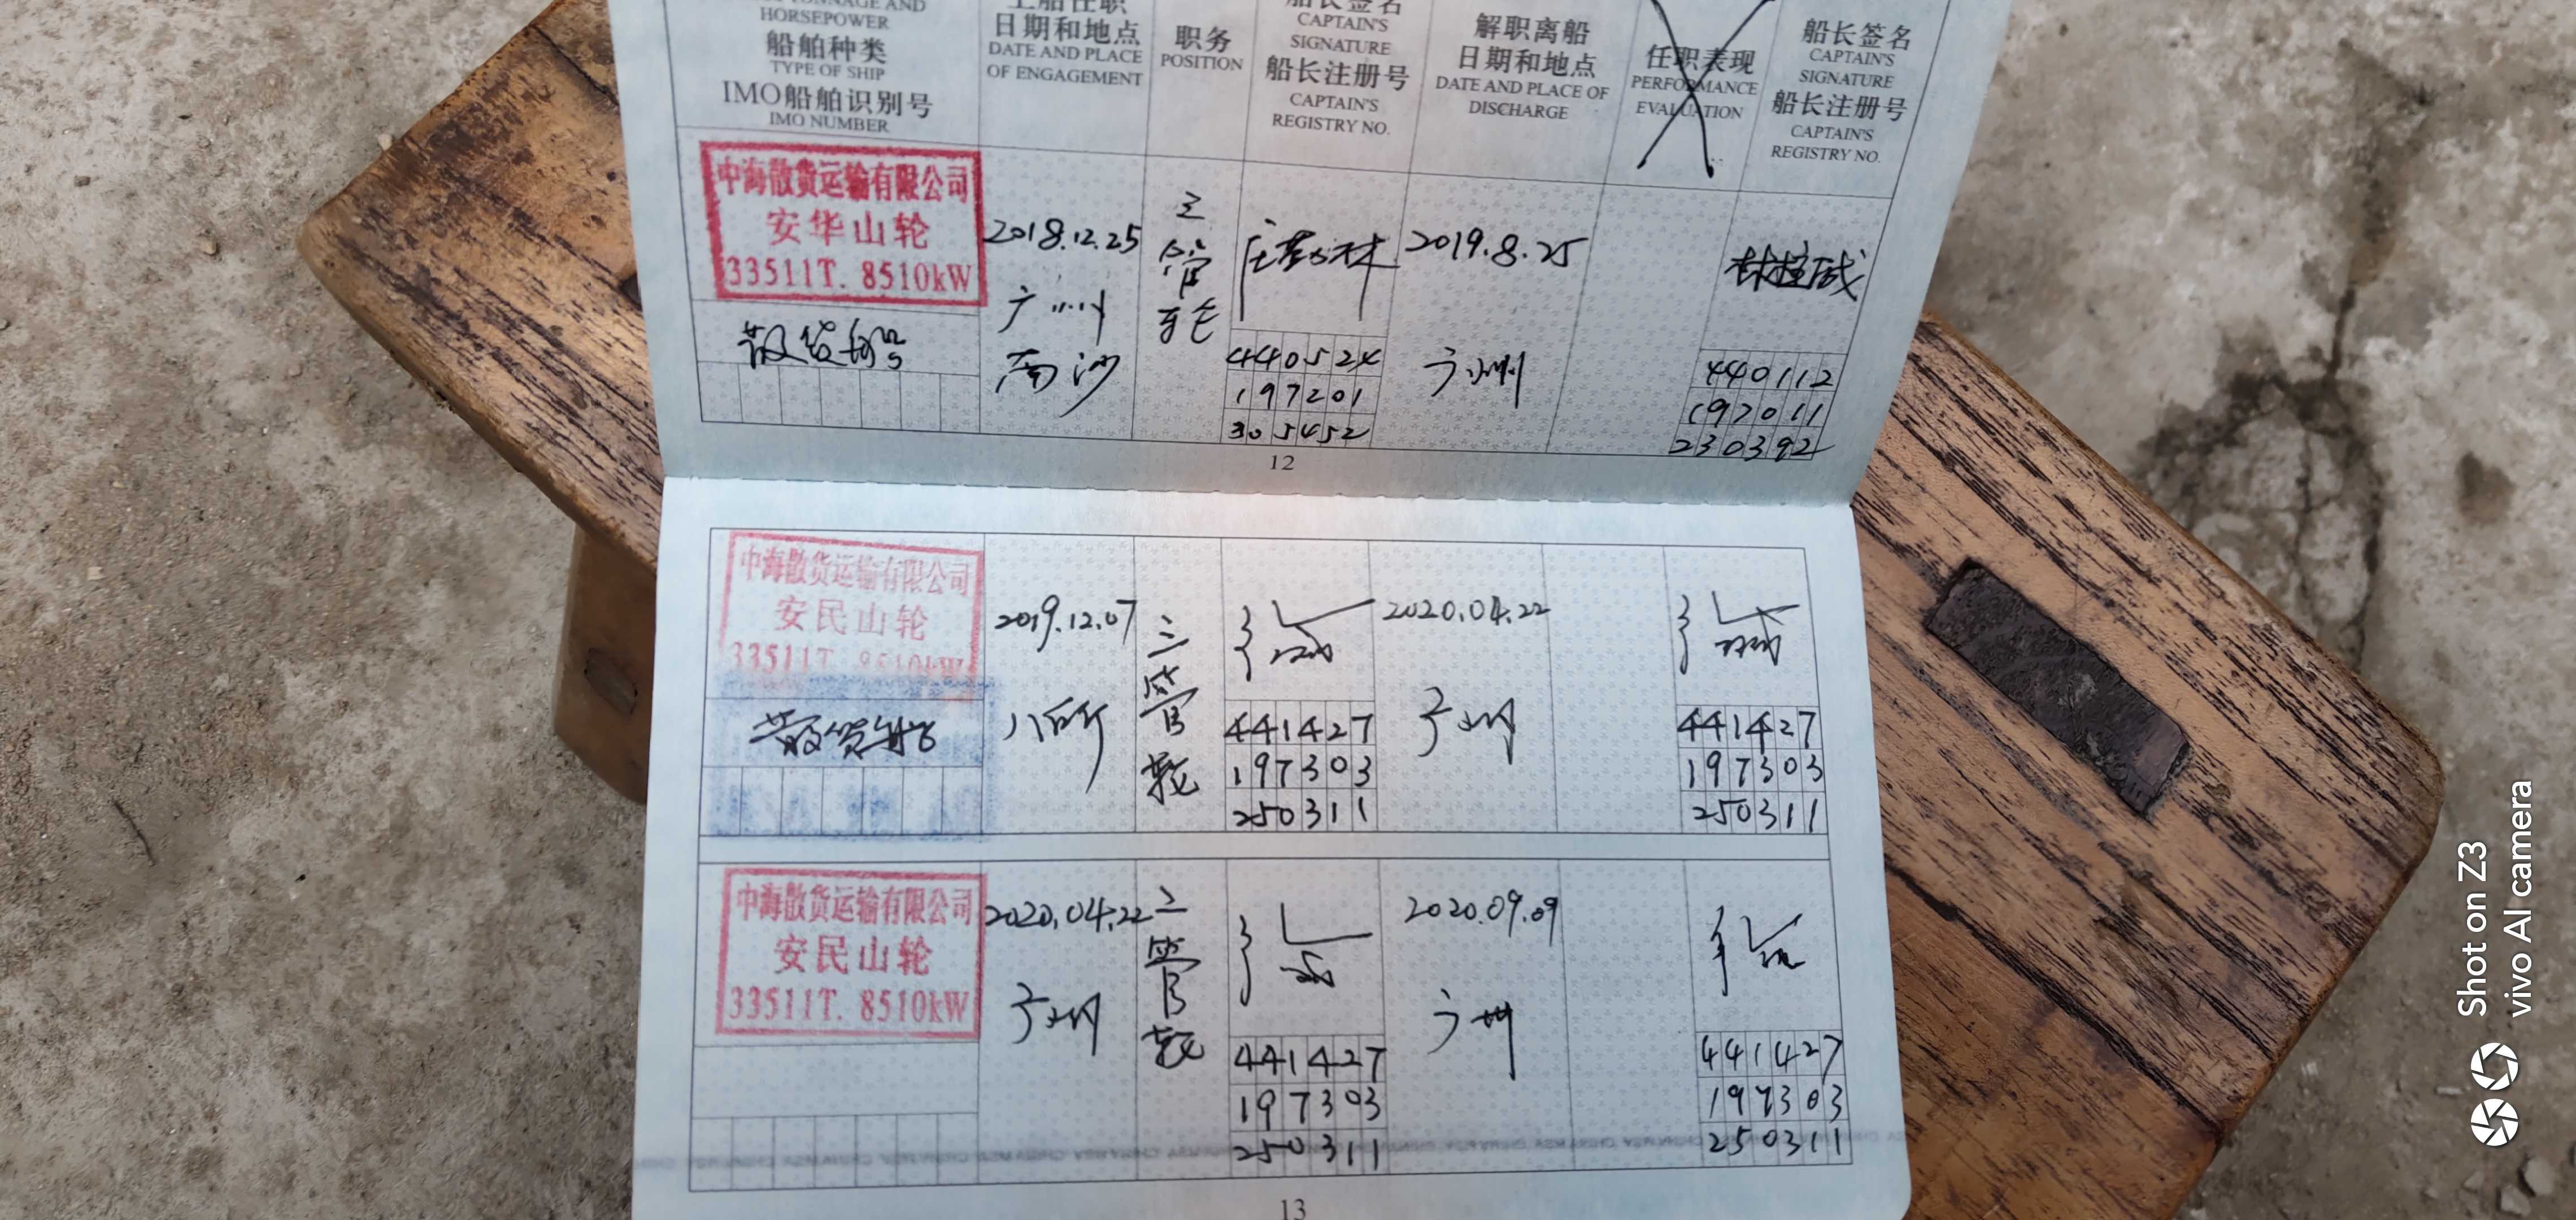 TONNAGE AND
HORSEPOWER
船舶种类
TYPE OF SHIP
IMO船舶识别号
IMO NUMBER
上船任职
日期和地点
DATE AND PLACE
OF ENGAGEMENT
职务
POSITION
船长签名
CAPTAIN'S
SIGNATURE
船长注册号
CAPTAIN'S
REGISTRY NO.
解职离船
日期和地点
DATE AND PLACE OF
DISCHARGE
任职表现
PERFORMANCE
EVALUATION
船长签名
CAPTAIN'S
SIGNATURE
船长注册号
CAPTAIN'S
REGISTRY NO.
中海散货运输有限公司
安华山轮
33511T. 8510kW
散货船
2018.12.25
广州
南沙
三
管
轮
440524
197201
305452
2019.8.25
广州
440112
197011
230392
12
中海散货运输有限公司
安民山轮
33511T. 8510kW
散货船
2019.12.07
八所
三
管
轮
441427
197303
250311
2020.04.22
广州
441427
197303
250311
中海散货运输有限公司
安民山轮
33511T. 8510kW
2020.04.22
广州
二
管
轮
441427
197303
250311
2020.09.09
广州
441427
197303
250311
13
Shot on Z3
vivo AI camera